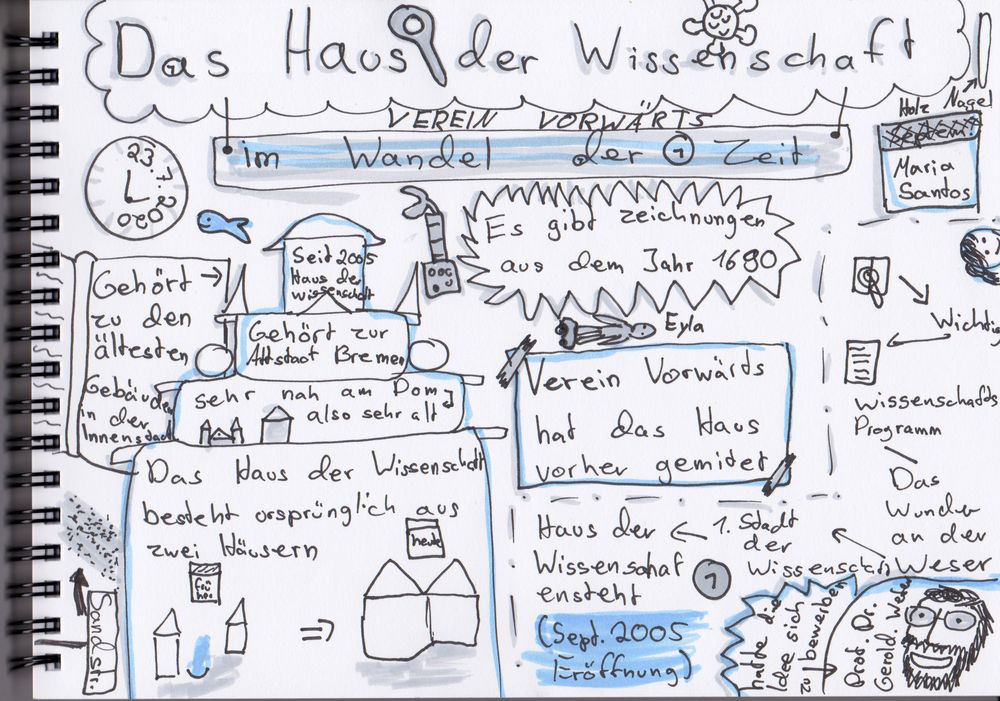 Das Haus der Wissenschaft
VEREIN VORWÄRTS
im Wandel der 1 Zeit
Holz
Nagel
Maria
Santos
Es gibt zeichnungen
aus dem Jahr 1680
Seit 2005
Haus der
wissenschaft
Gehört zur
Altstadt Bremen
sehr nah am Dom
also sehr alt
Gehört →
zu den
ältesten
Gebäuden
in der
Innenstadt
Das Haus der Wissenschaft
besteht orsprünglich aus
zwei Häusern
früher
heute
⇒
Sandstr.
Eyla
Verein Vorwärds
hat das Haus
vorher gemidet
Wichtig
wissenschafts
Programm
Das
Wunder
an der
Weser
1. Stadt
der
Wissenschaft
Haus der ←
Wissenschaf
ensteht
1
(Sept. 2005
Eröffnung)
hatte die
Idee sich
zu bewerben
Prof. Dr.
Gerold